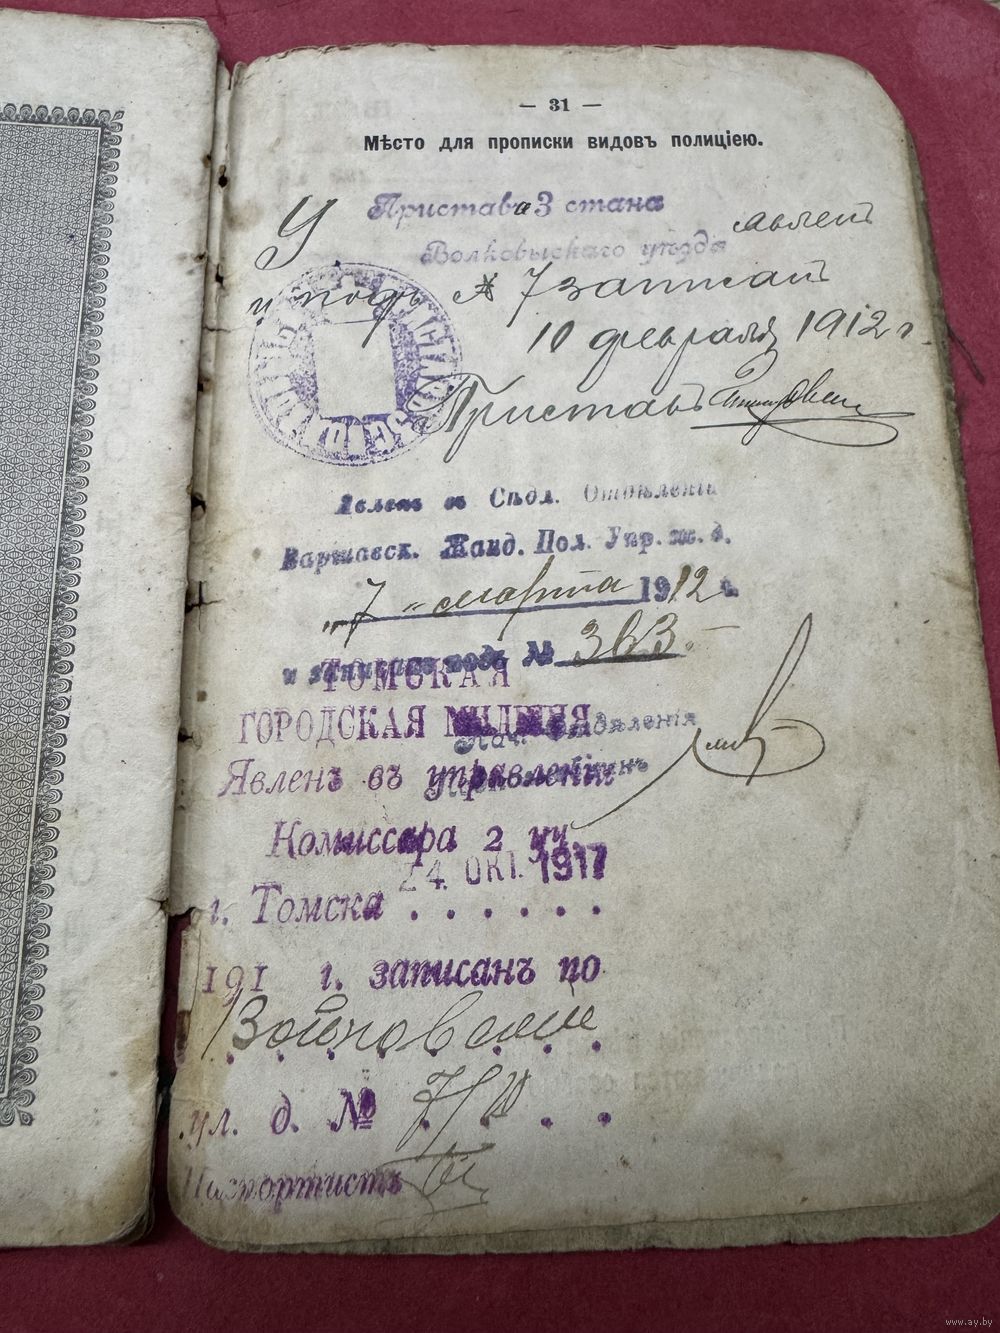 — 31 —
Мѣсто для прописки видовъ полиціею.
У Пристава 3 стана
Волковыскаго уѣзда явленъ
и подъ № 7 записанъ
10 февраля 1912 г.
Приставъ
Явленъ въ Сѣдл. Отдѣленіи
Варшавск. Жанд. Пол. Упр. ж. д.
„7" марта 1912 г.
и записанъ подъ № 363
Нач. Отдѣленія
ТОМСКАЯ
ГОРОДСКАЯ МИЛИЦІЯ
Явленъ въ управленіи
Комиссара 2 уч
24. ОКТ. 1917
г. Томска . . . . . .
191 г. записанъ по
ул. д. №
Паспортистъ
www.ay.by